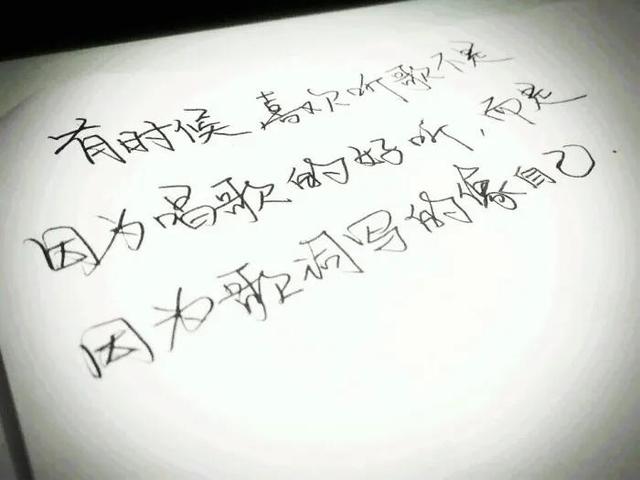 有时候喜欢听歌不是
因为唱歌的好听,而是
因为歌词写的像自己.